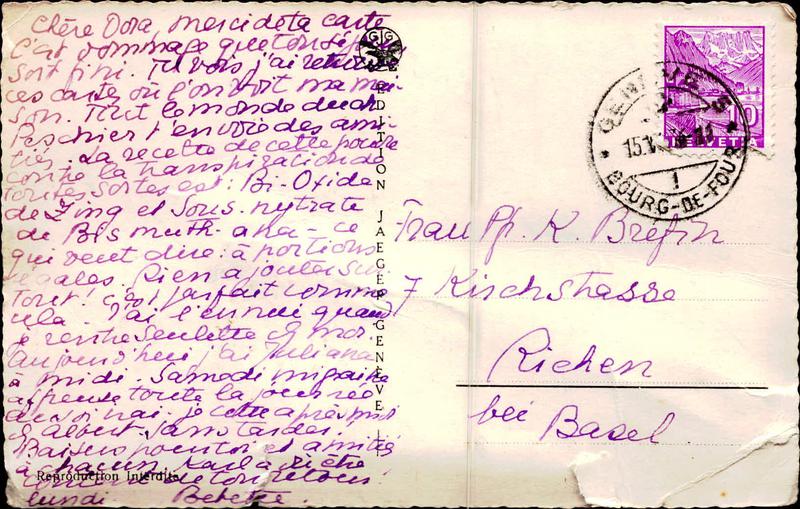 Chère Dora, merci de ta carte
C'est dommage que ton séjour
soit fini. Tu vois j'ai retrouvé
ces carte où l'on voit ma mai-
son. Tout le monde du ch.
Peschier t'envoie des ami-
tiés. La recette de cette poudre
contre la transpiration de
toutes sortes est: Bi-Oxide
de Zing et Sous-nytrate
de Bismuth-ana-ce
qui veut dire: à portions
égales. Rien ajouter sur-
tout! c'est parfait comme
cela. J'ai l'ennui quand
je rentre seulette
aujourd'hui j'ai Juliana
à midi. Samedi migraine
affreuse toute la journée
cette après-midi
Albert-Jans tardes.
Baisers pour toi et amitié
à chacun. Karl a
lundi Bebette.
EDITION JAEGER GENÈVE
Reproduction Interdite
GENÈVE
15.
1
BOURG-DE-FOUR
10
HELVETIA
Frau Pf. K. Brefin
7 Kirchstrasse
Richen
bei Basel.